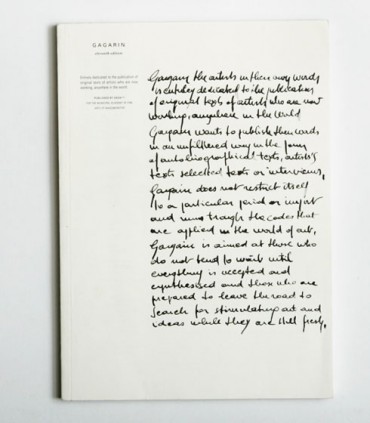 GAGARIN
Entirely dedicated to the publication of
original texts of artists who are now
working, anywhere in the world
Gagarin the artists in their own words
is entirely dedicated to the publication
of original texts of artists who are now
working, anywhere in the world
Gagarin wants to publish their words
in an unfiltered way in the form
of autobiographical texts, artists's
texts selected texts or interviews,
Gagarin does not restrict itself
to a particular period or
and runs trough the codes that
are applied in the world of art,
Gagarin is aimed at those who
do not tend to wait until
everything is accepted and
synthesised and those who are
prepared to leave the road to
search for stimulating art and
ideas while they are still fresh.